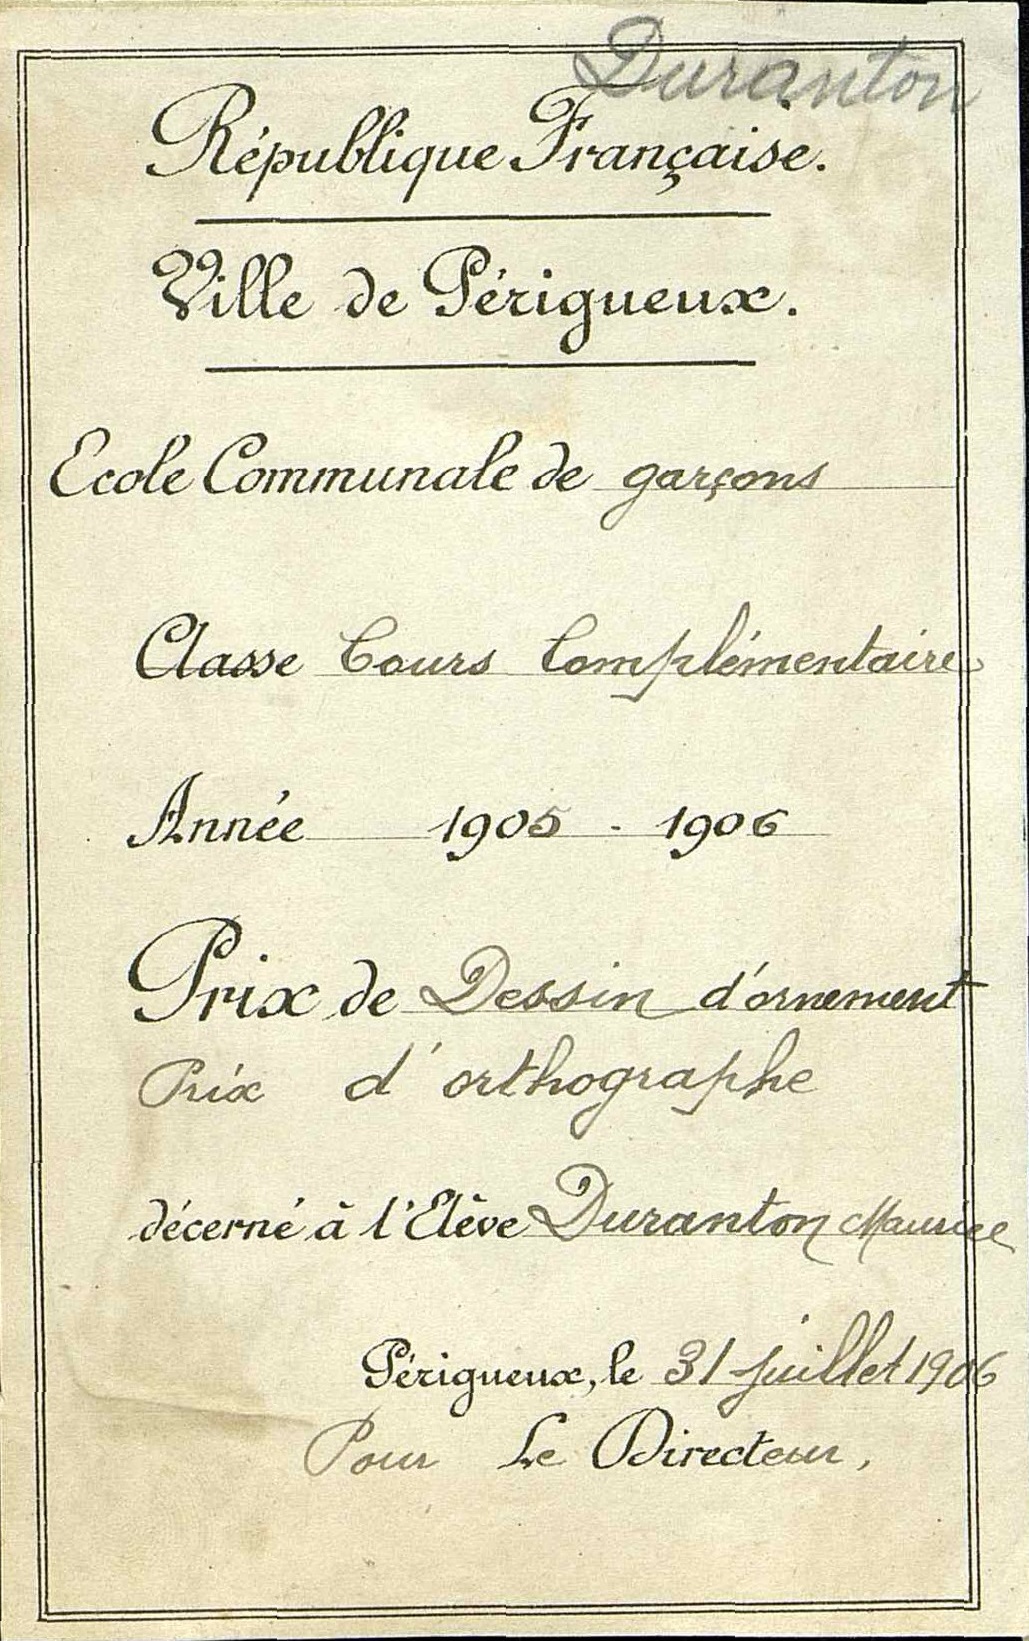 Duranton
République Française.
Ville de Périgueux.
Ecole Communale de garçons
Classe Cours Complémentaire
Année 1905 - 1906
Prix de Dessin d'ornement
Prix d'orthographe
décerné à l'Elève Duranton Maurice
Périgueux, le 31 juillet 1906
Pour Le Directeur,